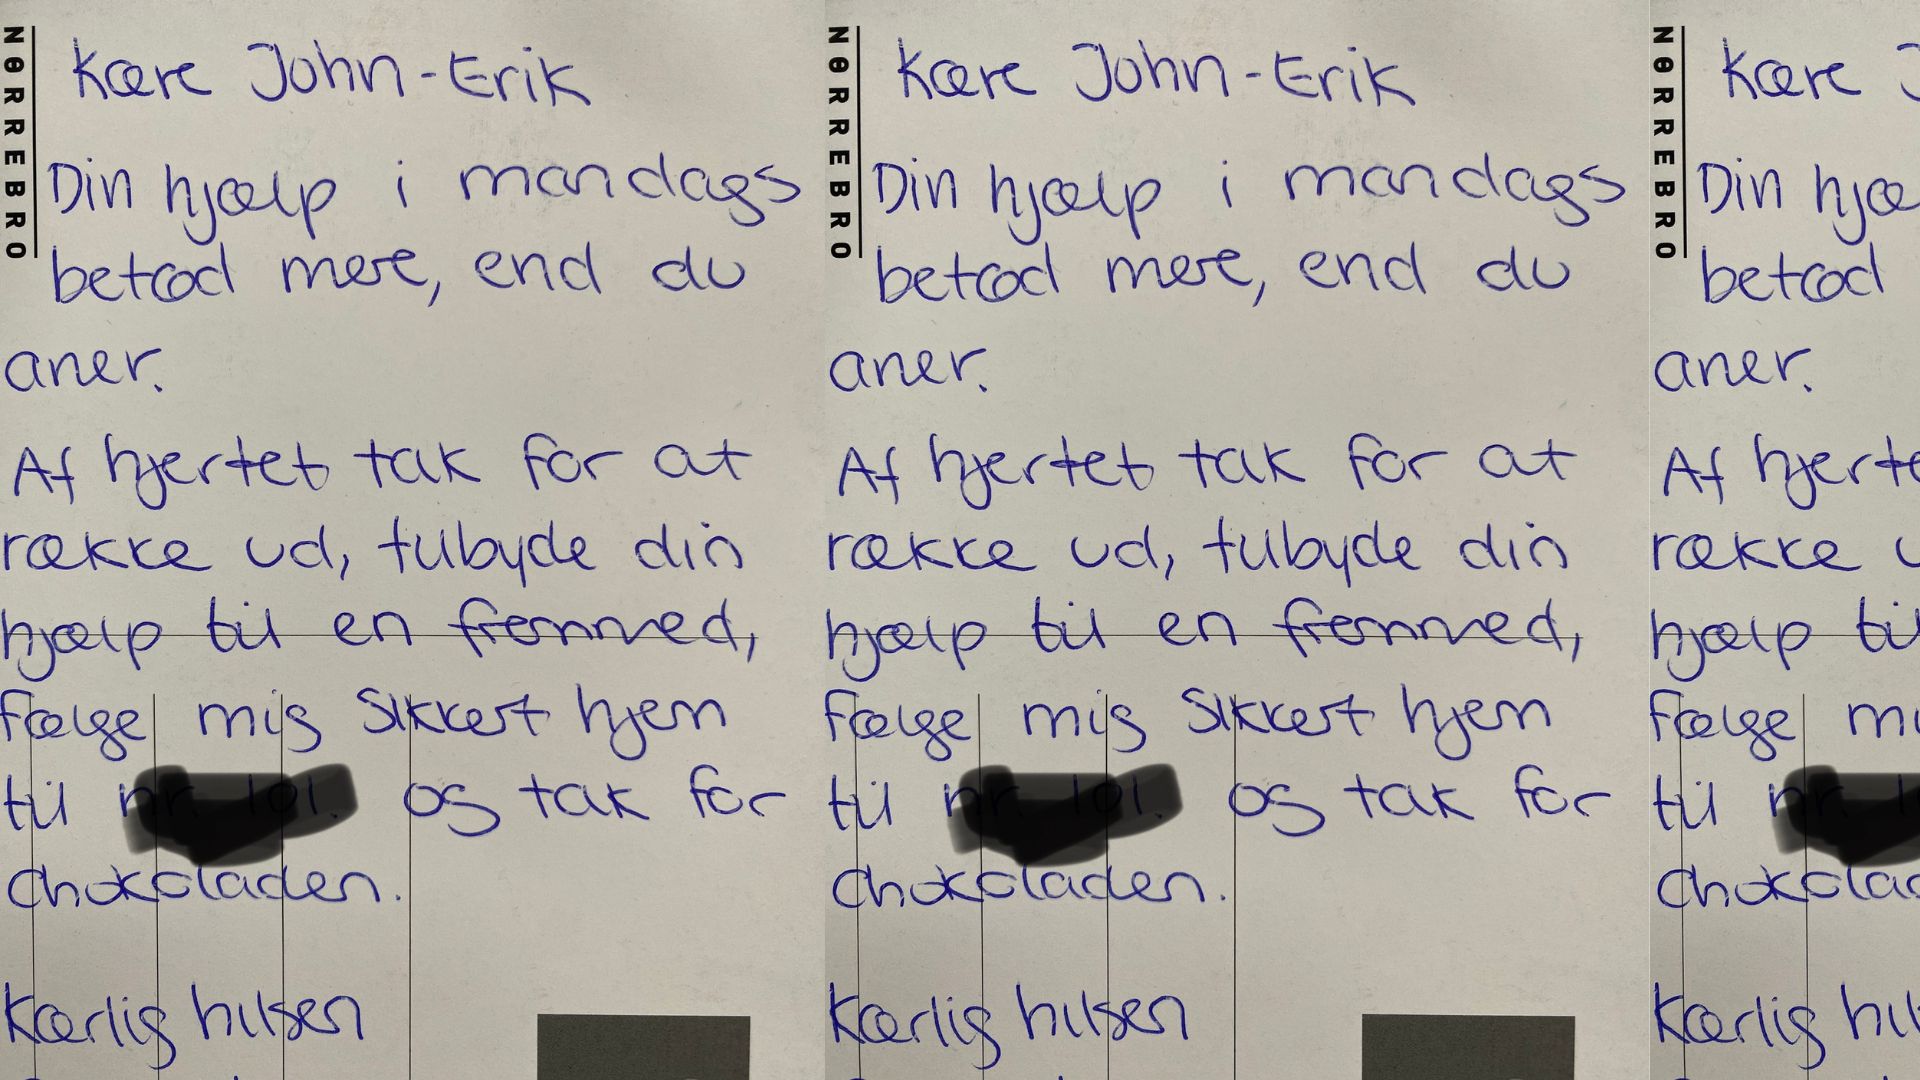 NØRREBRO
Kære John-Erik
Din hjælp i mandags
betød mere, end du
aner.
Af hjertet tak for at
række ud, tilbyde din
hjælp til en fremmed,
følge mig sikkert hjem
til og tak for
chokoladen.
Kærlig hilsen
NØRREBRO
Kære John-Erik
Din hjælp i mandags
betød mere, end du
aner.
Af hjertet tak for at
række ud, tilbyde din
hjælp til en fremmed,
følge mig sikkert hjem
til og tak for
chokoladen.
Kærlig hilsen
NØRREBRO
Kære
Din hjæ
betød
aner.
Af hjerte
række u
hjælp ti
følge mi
til
chokolad
Kærlig hil